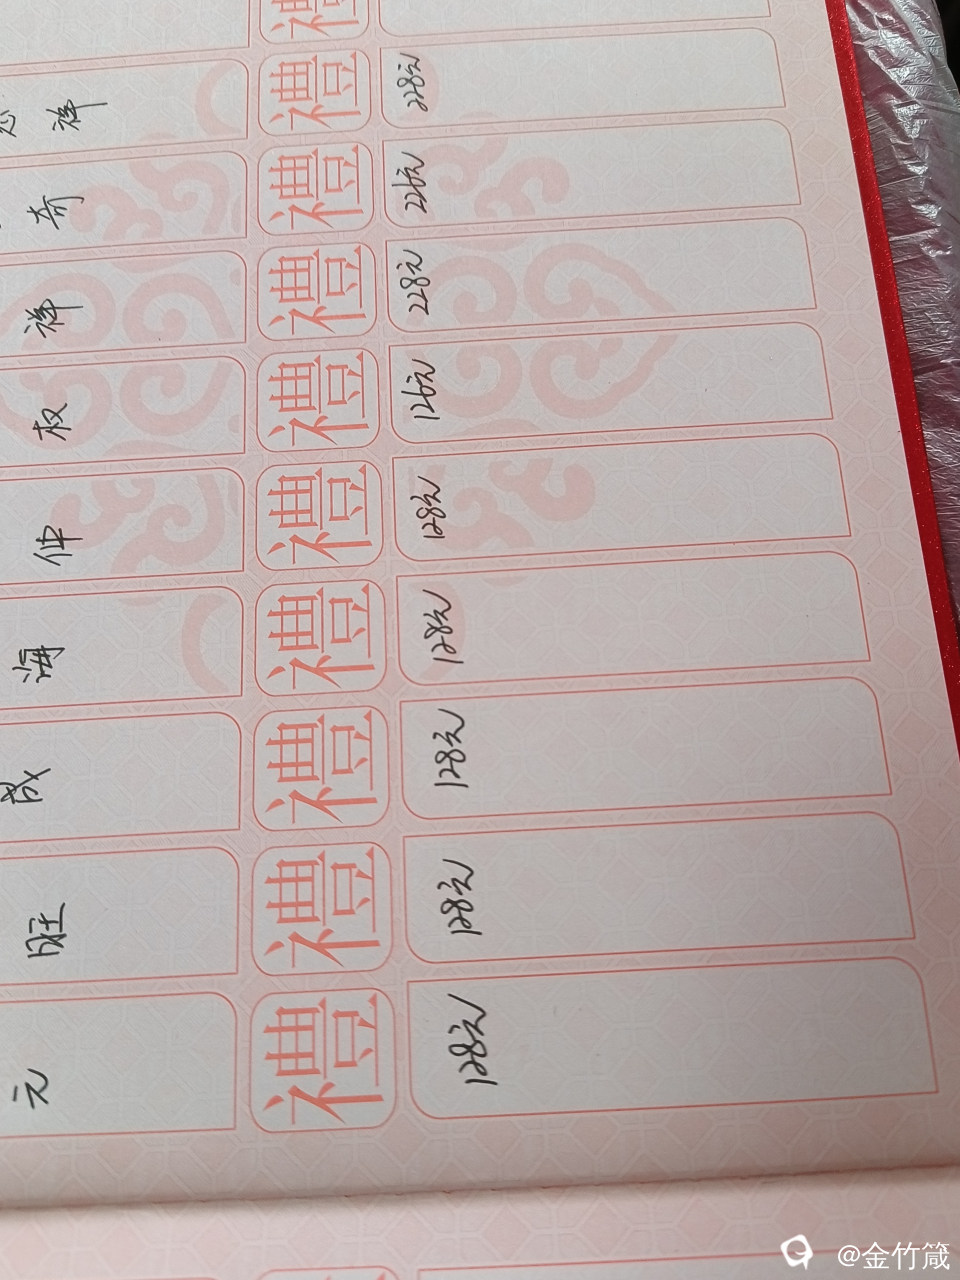 祥 禮 228元
奇 禮 226元
祥 禮 228元
权 禮 126元
仲 禮 128元
海 禮 128元
成 禮 128元
旺 禮 128元
元 禮 128元
@金竹箴